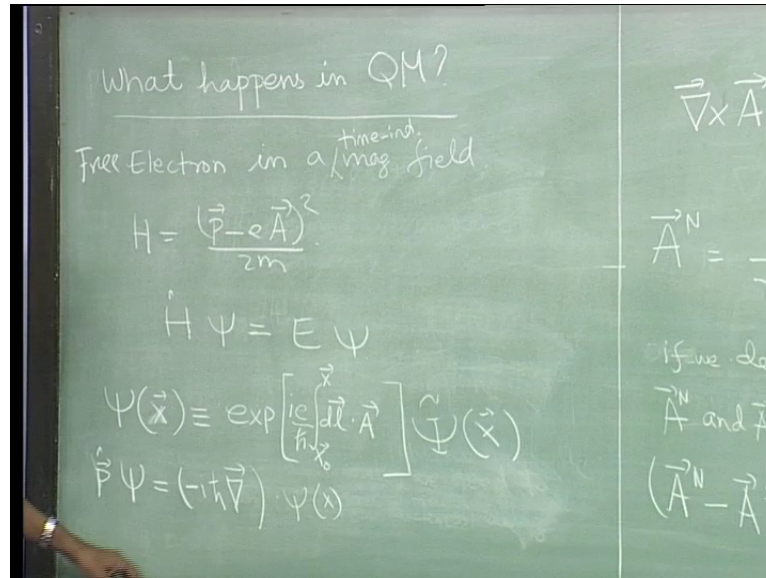 What happens in QM?
Free Electron in a time-ind. mag field.
H = (p⃗ - e A⃗)² / 2m
Ĥ ψ = E ψ
ψ(x⃗) ≡ exp[ie/ħ ∫_{x⃗₀}^{x⃗} dl⃗ · A⃗] ψ̃(x⃗)
p̂⃗ ψ = (-iħ∇⃗) · ψ(x)
∇⃗ × A⃗
A⃗ᴺ =
if we de
A⃗ᴺ and A⃗
(A⃗ᴺ - A⃗